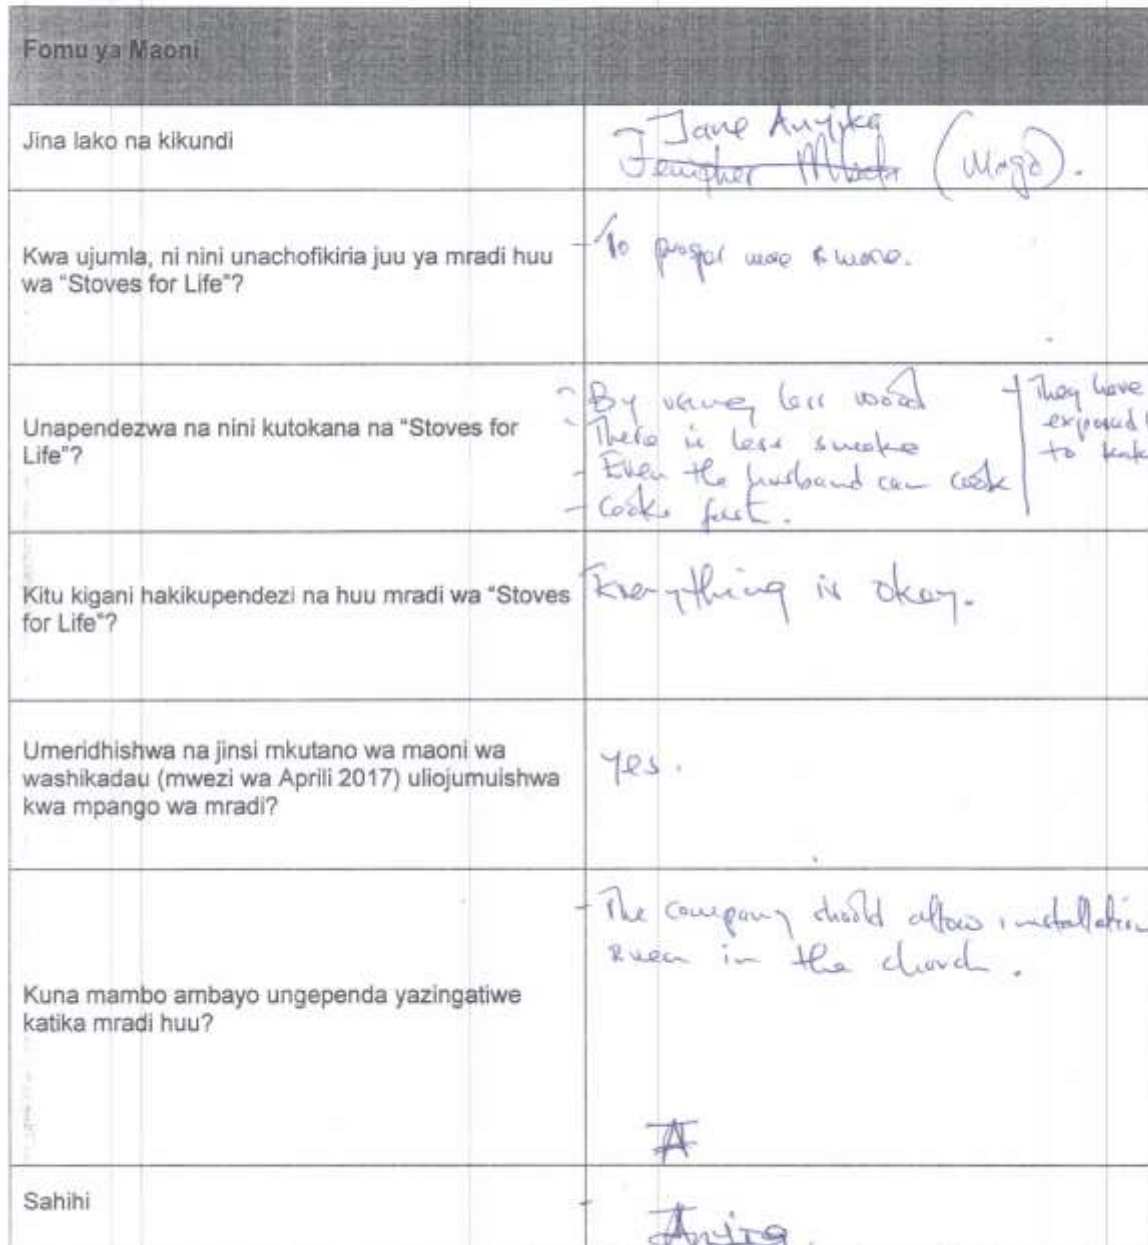 Fomu ya Maoni
Jina lako na kikundi
Jane
(
).
Kwa ujumla, ni nini unachofikiria juu ya mradi huu
wa “Stoves for Life”?
- To more & more.
Unapendezwa na nini kutokana na “Stoves for
Life”?
- By less wood
- There is less smoke
- Even the husband can cook
- Cooks fast.
- They have
exposed
to
Kitu kigani hakikupendezi na huu mradi wa “Stoves
for Life”?
Everything is okay.
Umeridhishwa na jinsi mkutano wa maoni wa
washikadau (mwezi wa Aprili 2017) uliojumuishwa
kwa mpango wa mradi?
yes.
Kuna mambo ambayo ungependa yazingatiwe
katika mradi huu?
- The company should allow installation
even in the church.
Sahihi